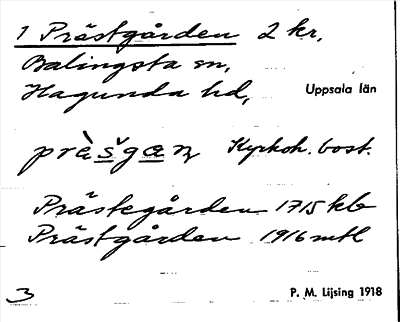 1 Prästgården 2 kr,
Balingsta sn,
Hagunda hd, Uppsala län
prὲšgan Kyrkoh. bost.
Prästegården 1715 kb
Prästgården 1916 mtl
3 P. M. Lijsing 1918